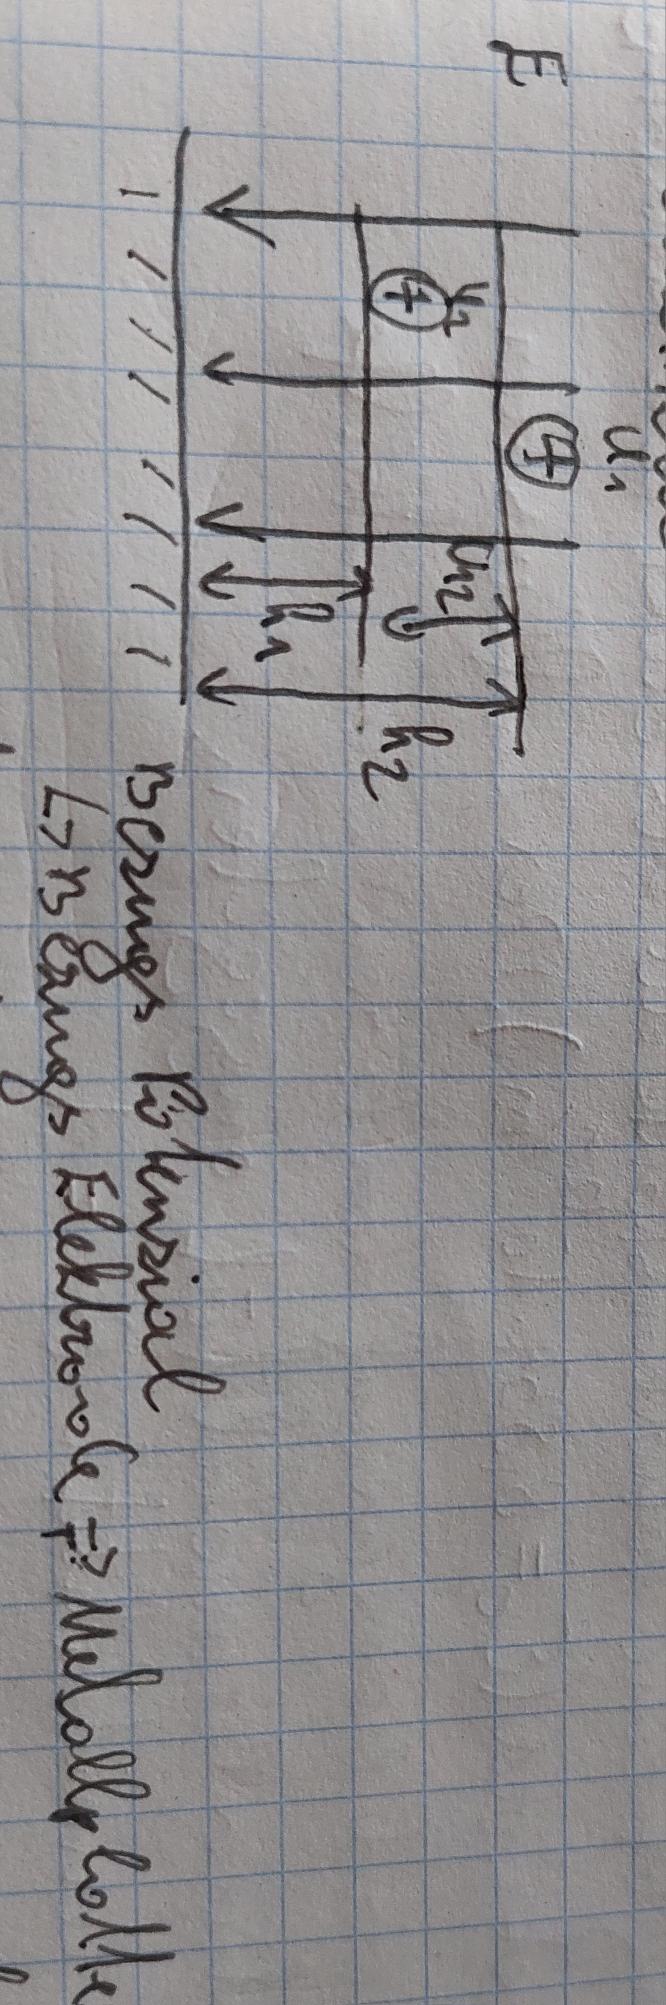 E
U₁
U₂
U₁₂
h₁
h₂
Bezugs Potenzial
↳ Bezugs Elektrode => Metallplatte